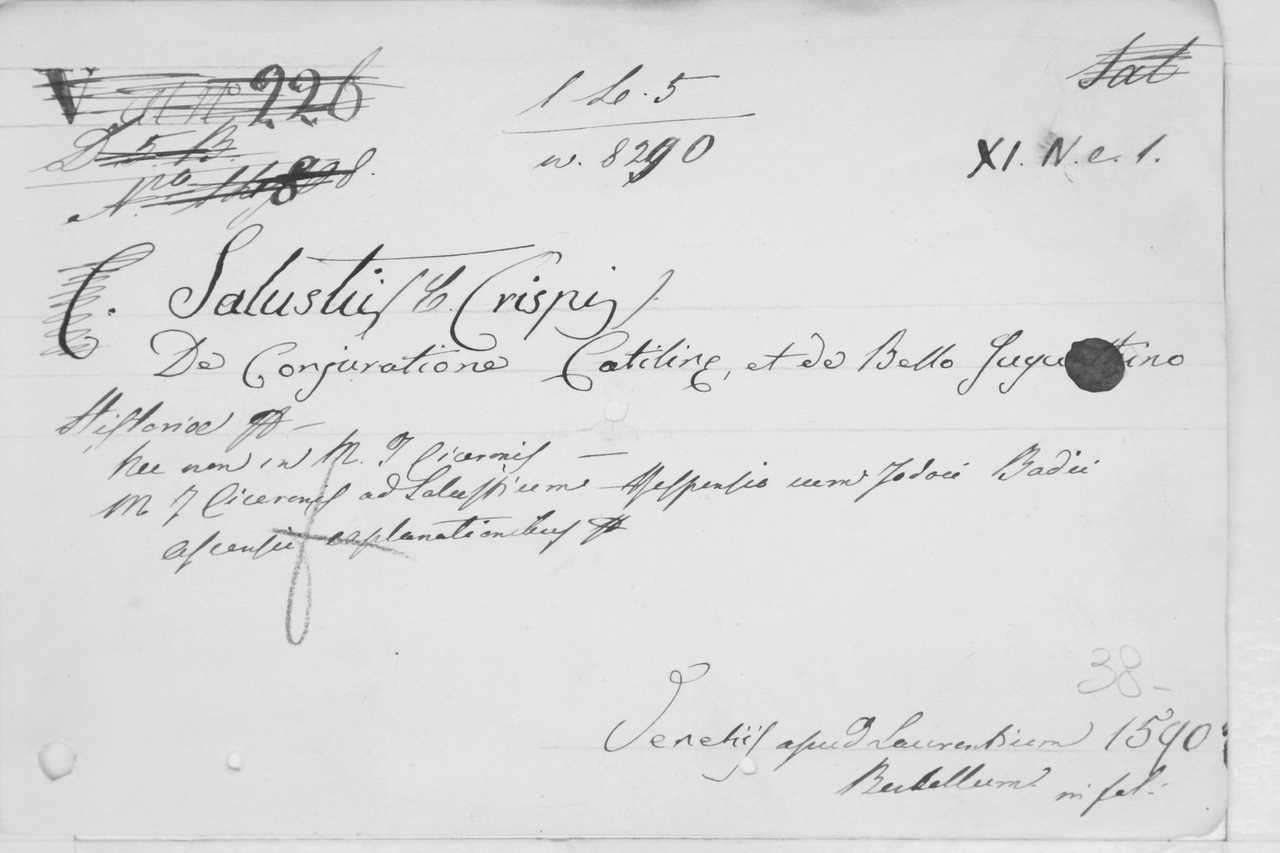 226
1 Le. 5
Sal
D 5. B.
w. 8290
XI. N. c. 1.
C. Salustii (C. Crispi)
De Conjuratione Catiline, et de Bello Jugu tino
Historiae
nec non in M. T Ciceronis —
M T Ciceronis ad Salustium Responsio cum Jodoci Badii
Ascensii explanationibus
38–
Venetijs apud Laurentium 1590
in fol.